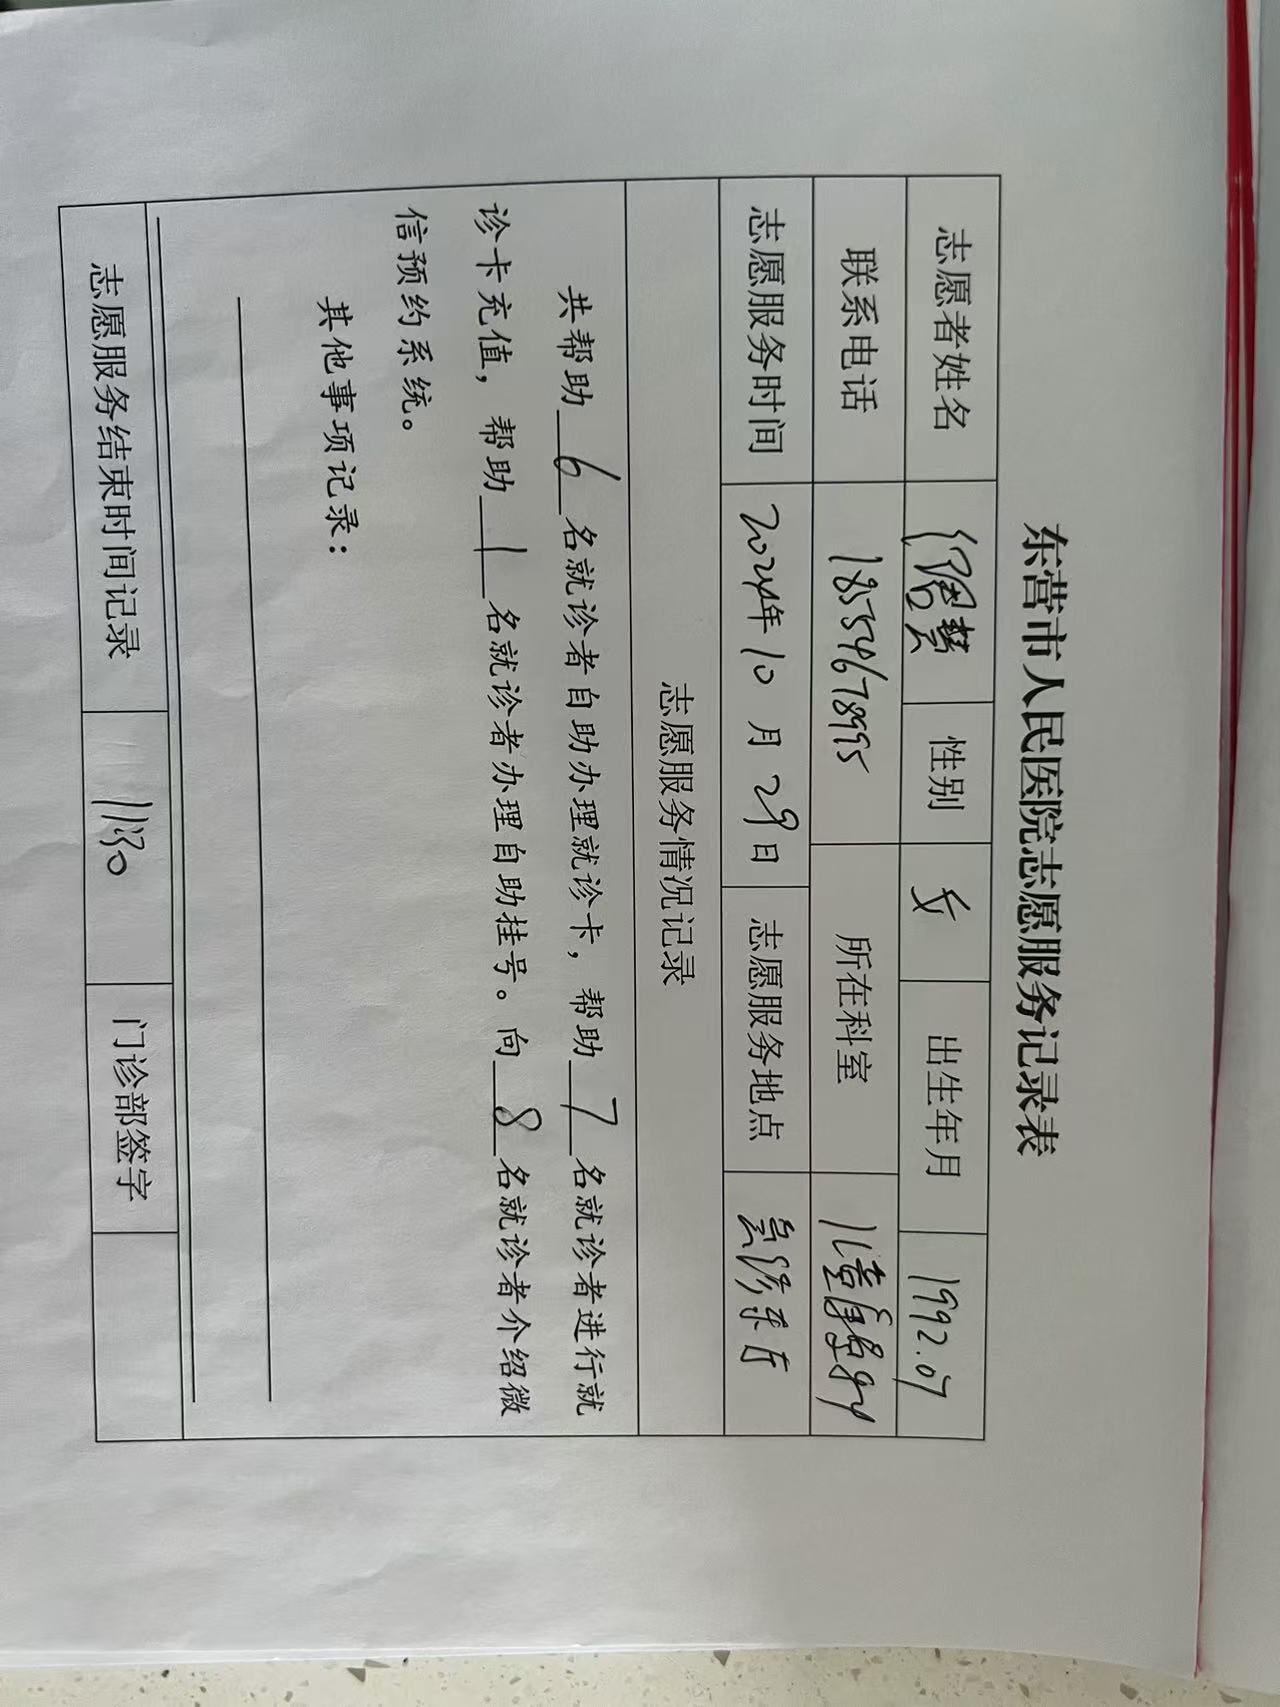 东营市人民医院志愿服务记录表
志愿者姓名 性别 女 出生年月 1992.07
联系电话 18554678995 所在科室
志愿服务时间 2024年10月29日 志愿服务地点
志愿服务情况记录
共帮助6名就诊者自助办理就诊卡，帮助7名就诊者进行就
诊卡充值，帮助1名就诊者办理自助挂号。向8名就诊者介绍微
信预约系统。
其他事项记录：
志愿服务结束时间记录 11:30 门诊部签字